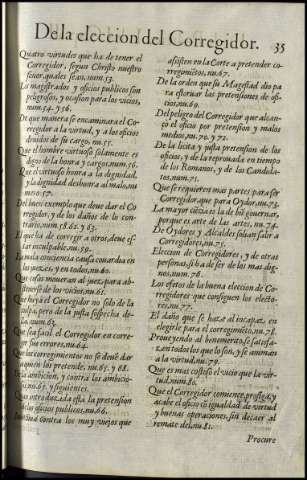 De la eleccion del Corregidor. 35
Quatro virtudes que ha de tener el
Corregidor, segun Christo nuestro
señor, quales sean, num.53.
magistrados y oficios publicos son
peligrosos, y ocasion para los vicios,
num.54. y 56.
De que manera se encaminara el Co-
rregidor a la virtud, y a los oficios
devidos de su cargo, num.55.
Que el hombre virtuoso solamente es
digno de la honra y cargos, num.56.
Que el virtuoso honra a la dignidad,
y la dignidad deshonra al malo, nu-
mero 57.
Del buen exemplo que deue dar el Co
rregidor, y de los daños de lo con-
trario, num.58.62. y 63.
ha de corregir a otros, deue es-
tar inculpable, nu.59.
La mala conciencia causa couardia en
los juezes, y en todos, nu.60.
cosas mueuan al juez, para abs-
tenerse de los vicios, nu.61.
Que huya el Corregidor no solo de la
culpa, pero de la justa sospecha de-
lla, num.63.
Que sea facil el Corregidor en corre-
gir sus errores, nu.64.
corregimientos no se deuē dar
a quien los pretende, nu.65. y 68.
De la ambicion, y contra los ambicio-
sos, nu.65. y siguientes.
introduzida esta la pretension
de los oficios publicos, nu.66.
contra los muy viejos que
assisten en la Corte a pretender co-
rregimiētos, nu.67.
De la orden que su Magestad dio pa
ra estoruar las pretensiones de ofi-
cios, nu.69.
Del peligro del Corregidor que alcan-
çò el oficio por pretension y malos
medios, nu.70. y 72.
De la licita y justa pretension de los
oficios, y de la reprouada en tiempo
de los Romanos, y de los Candida-
tos, num.71.
Que se requieren mas partes para ser
Corregidor, que para Oydor, nu.73.
La mayor ciēcia es la del gouernar,
porque es arte de las artes, nu.74.
De Oydores y Alcaldes solian salir a
Corregidores, nu.75.
Eleccion de Corregidores, y de otras
personas, si ha de ser de los mas dig-
nos, num.76.
Los efetos de la buena eleccion de Co-
rregidores que consiguen los electo-
res, nu.77.
El daño que se haze al incapaz en
elegirle para el corregimiēto, nu.78.
Proueyendo al benemerito, se satisfa-
zen todos los que lo son, y se animan
a la virtud, nu.79.
Que es mas costoso el vicio que la vir-
tud, num.80.
Que el Corregidor comience, prosiga, y
acabe el oficio cō igualdad de virtud
y buenas operaciones, sin descaer al
remate del, nu.81.
Procure